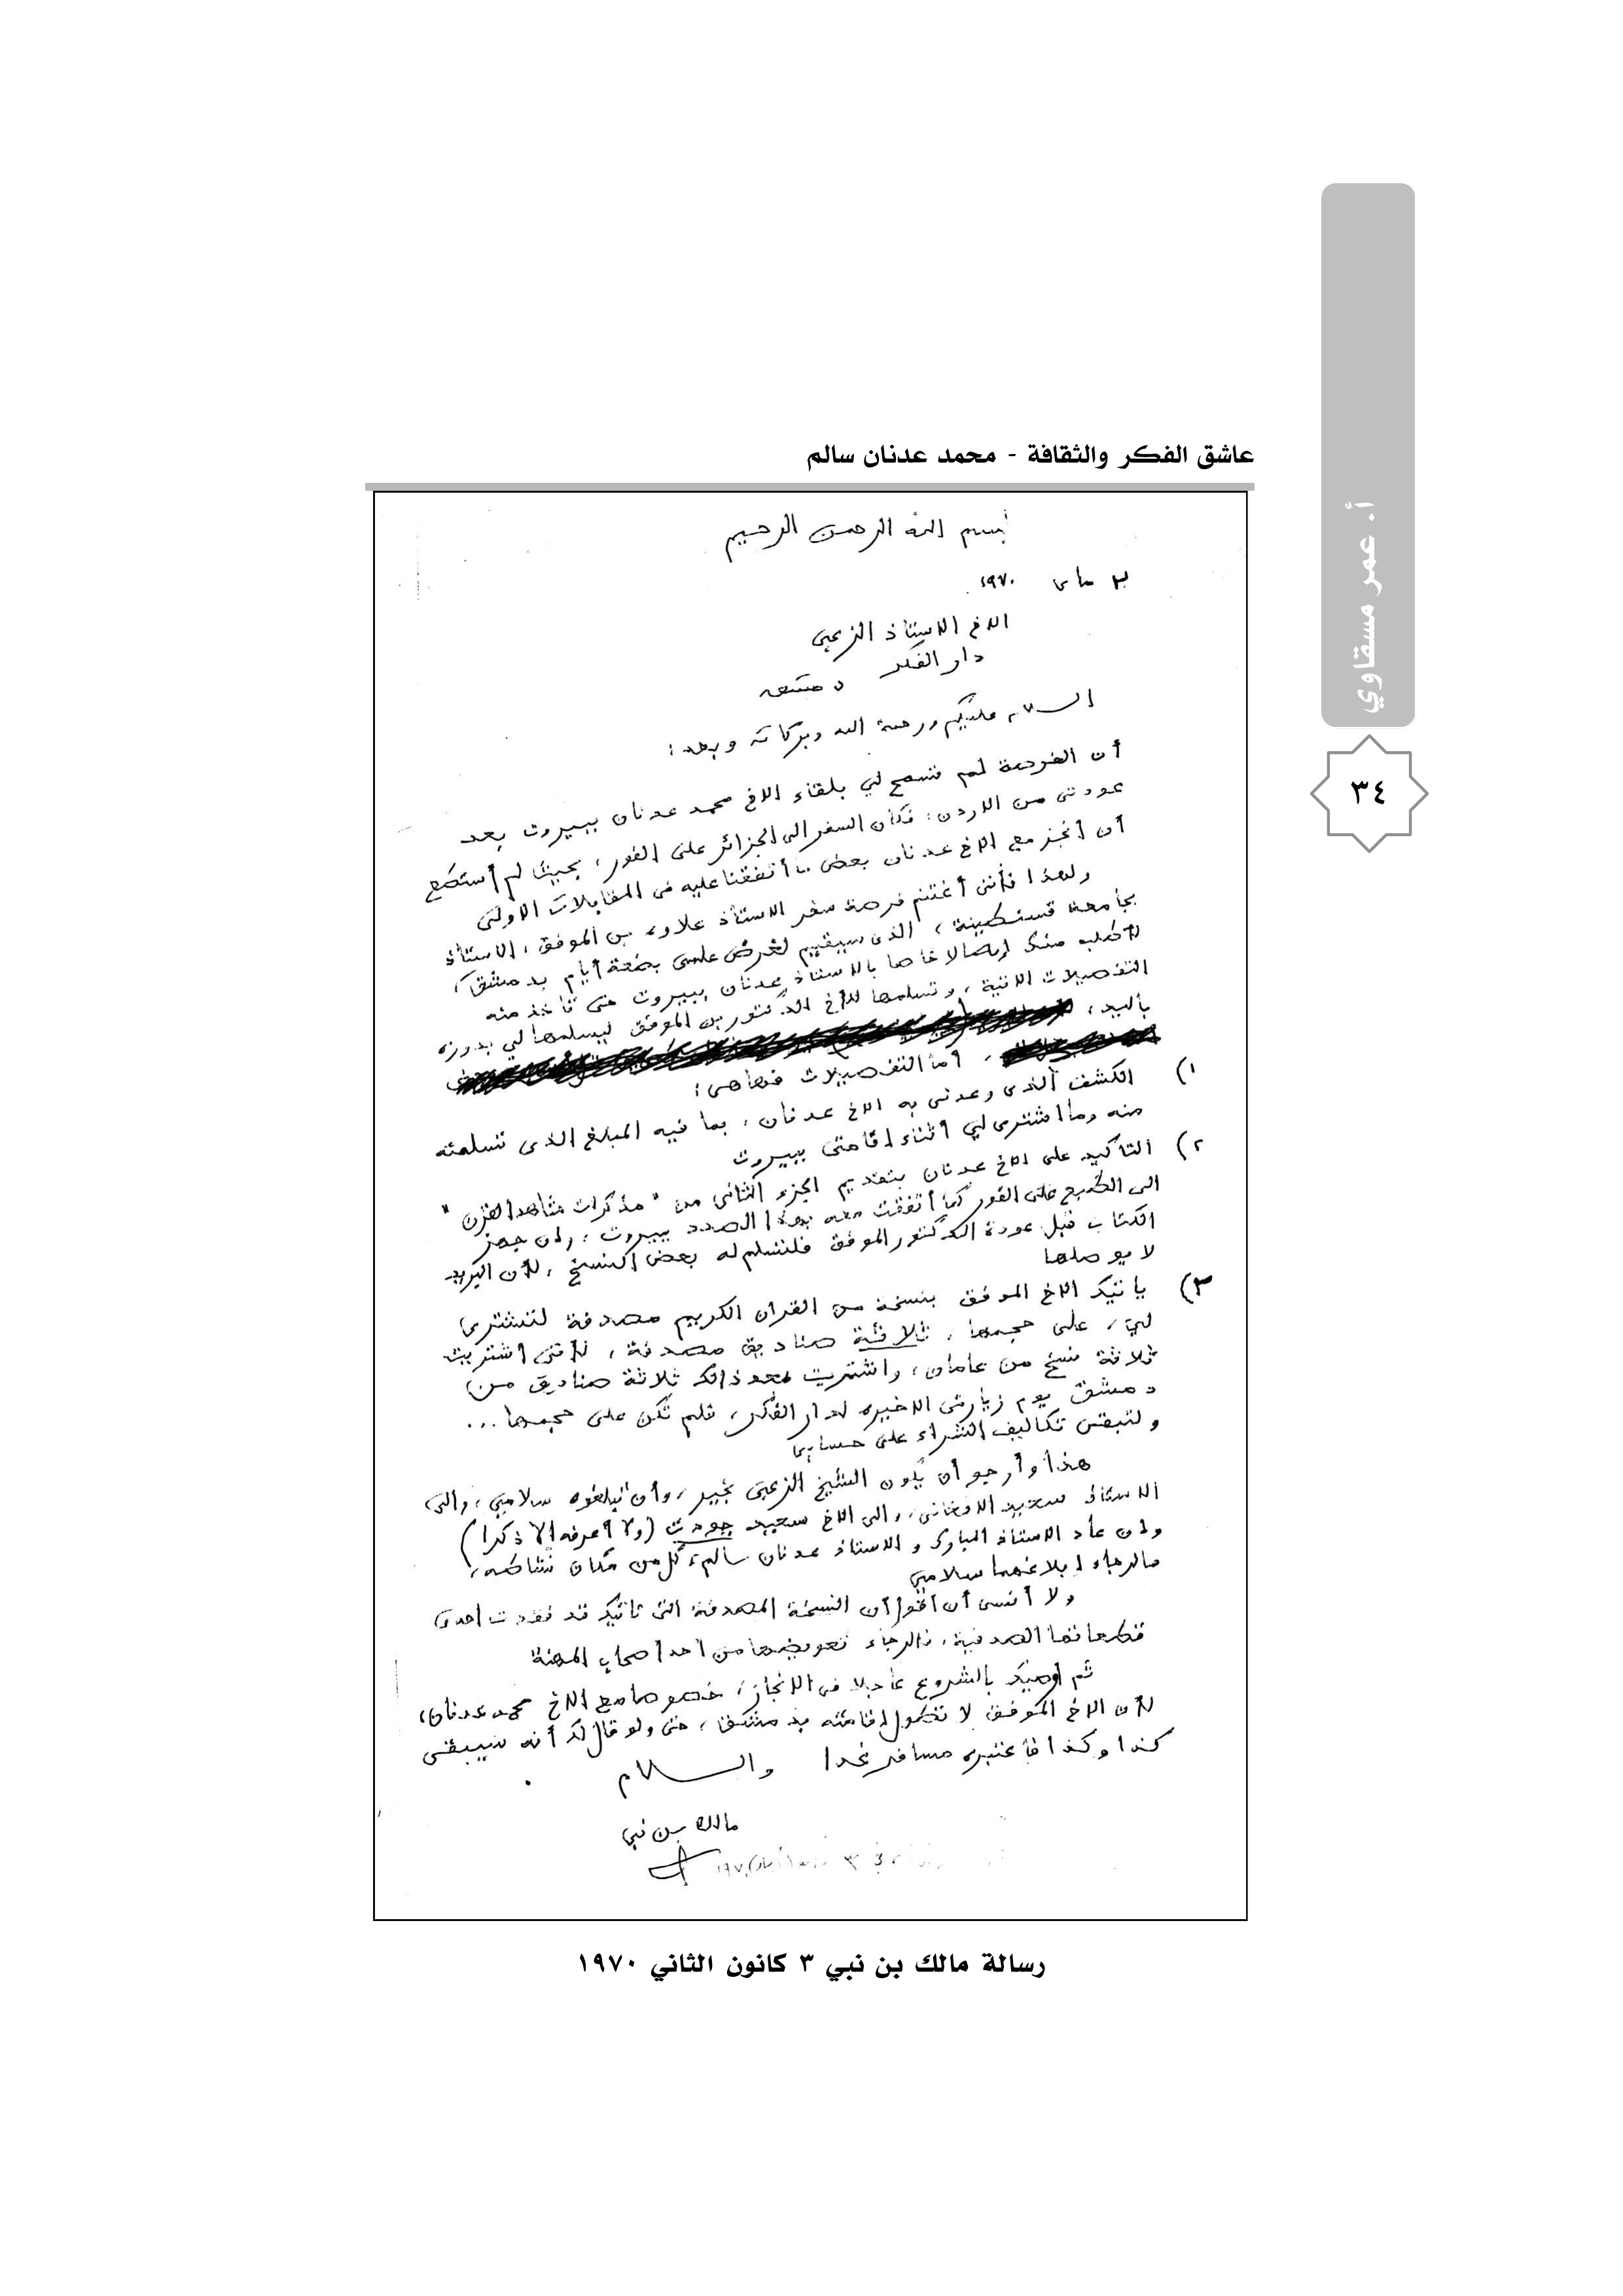 عاشق الفكر والثقافة - محمد عدنان سالم
أ. عمر مسقاوي
٣٤
بسم الله الرحمن الرحيم
ماى ١٩٧٠
الاخ الاستاذ الزعبى
دار الفكر دمشق
السلام عليكم ورحمة الله وبركاته وبعد :
أن الفرصة لم تسمح لي بلقاء الاخ محمد عدنان ببيروت بعد
عودتى من الاردن ، فكان السفر الى الجزائر على الفور ، بحيث لم أستطع
أن أنجز مع الاخ عدنان بعض ما أتفقنا عليه فى المقابلات الاولى
ولهذا فأننى أغتنم فرصة سفر الاستاذ علاوه بن الموفق ، الاستاذ
بجامعة قسنطينة ، الذى سيقيم لغرض علمى بضعة أيام بدمشق ،
لأطلب منك إيصالا خاصا بالاستاذ عدنان ببيروت حتى تأخذ منه
التفصيلات الاتية ، وتسلمها للأخ الدكتور بن الموفق ليسلمها لي بدوره
بأليد ،
، أما التفصيلات فهاهى :
١) الكشف الذى وعدنى به الاخ عدنان ، بما فيه المبلغ الذى تسلمته
منه وما اشترى لي أثناء اقامتى ببيروت
٢) التأكيد على الاخ عدنان بتقديم الجزء الثانى من " مذكرات شاهد القرن "
الى الطبع على الفور كما أتفقت معه بهذا الصدد ببيروت ، وان جهز
الكتاب قبل عودة الدكتور الموفق فلتسلم له بعض النسخ ، لأن البريد
لا يوصلها
٣) يأتيك الاخ الموفق بنسخة من القران الكريم مصدفة لتشترى
لي ، على حجمها ، ثلاثة صناديق مصدفة ، لأننى اشتريت
ثلاثة نسخ من عامان ، واشتريت بعد ذالك ثلاثة صناديق من
دمشق يوم زيارتى الاخيره لدار الفكر ، فلم تكن على حجمها ...
ولتبقى تكاليف الشراء على حسابى
هذا وأرجو أن يكون الشيخ الزعبى بخير ، وأن تبلغوه سلامي ، والى
الاستاذ سعيد الافغانى ، والى الاخ سعيد جودت (ولا أعرفه إلا ذكرا)
وان عاد الاستاذ المبارك والاستاذ عدنان سالم ، كل من مكان نشاطه ،
فالرجاء ابلاغهما سلامي
ولا أنسى أن أقول أن النسخة المصدفة التى تاتيك قد فقدت احدى
قطعاتها الصدفية ، فالرجاء تعويضها من أحد أصحاب المهنة
ثم أوصيك بالشروع عاجلا فى الانجاز ، خصوصا مع الاخ محمد عدنان ،
لأن الاخ الموفق لا تطول اقامته بدمشق ، حتى ولو قال لك أنه سيبقى
كذا وكذا فاعتبره مسافر غدا والسلام
مالك بن نبي
رسالة مالك بن نبي ٣ كانون الثاني ١٩٧٠